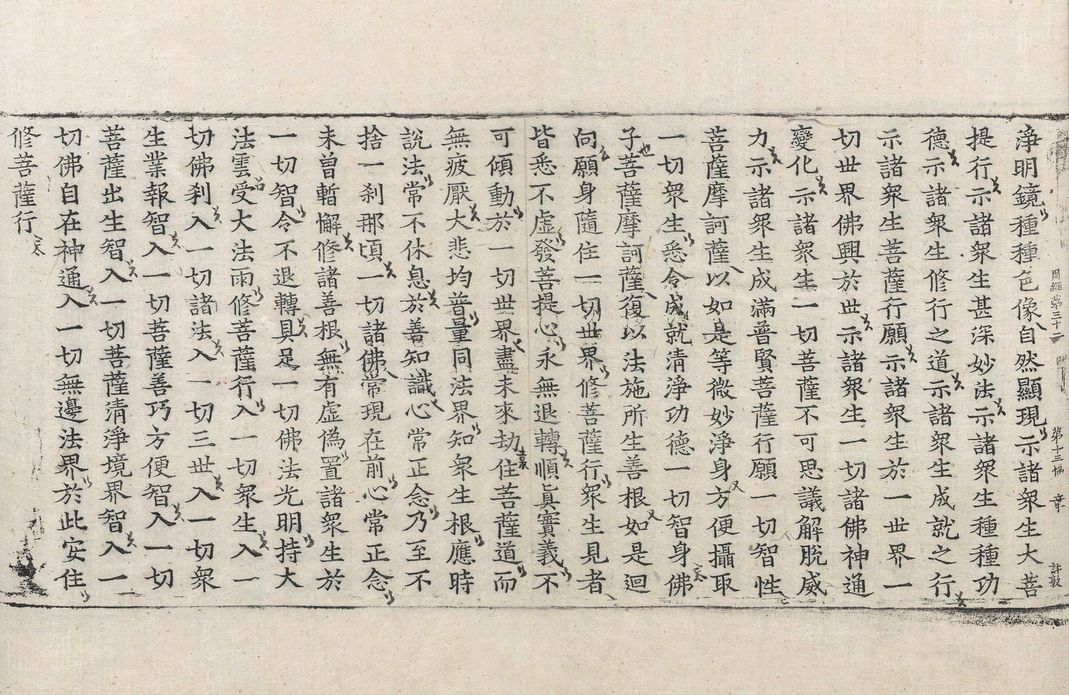 周經第三十二 第十三幅
淨明鏡種種色像自然顯現示諸衆生大菩
提行示諸衆生甚深妙法示諸衆生種種功
德示諸衆生修行之道示諸衆生成就之行
示諸衆生菩薩行願示諸衆生於一世界一
切世界佛興於世示諸衆生一切諸佛神通
變化示諸衆生一切菩薩不可思議解脫威
力示諸衆生成滿普賢菩薩行願一切智性
菩薩摩訶薩以如是等微妙淨身方便攝取
一切衆生悉令成就清淨功德一切智身佛
子菩薩摩訶薩復以法施所生善根如是迴
向願身隨住一切世界修菩薩行衆生見者
皆悉不虛發菩提心永無退轉順眞實義不
可傾動於一切世界盡未來劫住菩薩道而
無疲厭大悲均普量同法界知衆生根應時
說法常不休息於善知識心常正念乃至不
捨一刹那頃一切諸佛常現在前心常正念
未曾暫懈修諸善根無有虛僞置諸衆生於
一切智令不退轉具足一切佛法光明持大
法雲受大法雨修菩薩行入一切衆生入一
切佛刹入一切諸法入一切三世入一切衆
生業報智入一切菩薩善巧方便智入一切
菩薩出生智入一切菩薩清淨境界智入一
切佛自在神通入一切無邊法界於此安住
修菩薩行